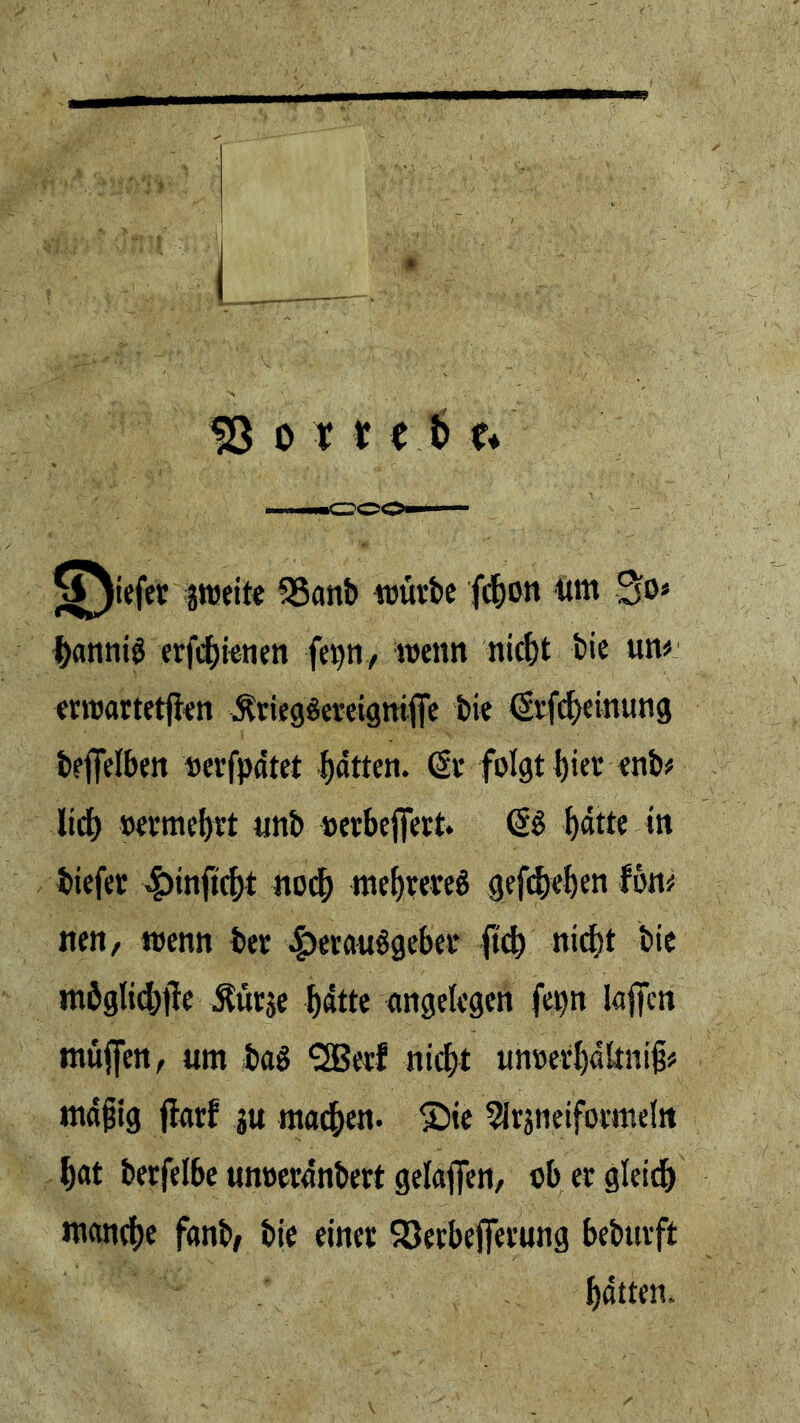 Vorrede.
Dieser zweite Band würde schon um Jo-
hannis erschienen seyn, wenn nicht die un-
erwartetsten Kriegsereignisse die Erscheinung
desselben verspätet hätten. Er folgt hier end-
lich vermehrt und verbessert. Es hätte in
dieser Hinsicht noch mehreres geschehen kön-
nen, wenn der Herausgeber sich nicht die
möglichste Kürze hätte angelegen seyn lassen
müssen, um das Werk nicht unverhältniß-
mäßig stark zu machen. Die Arzneiformeln
hat derselbe unverändert gelassen, ob er gleich
manche fand, die einer Verbesserung bedurft
hätten.